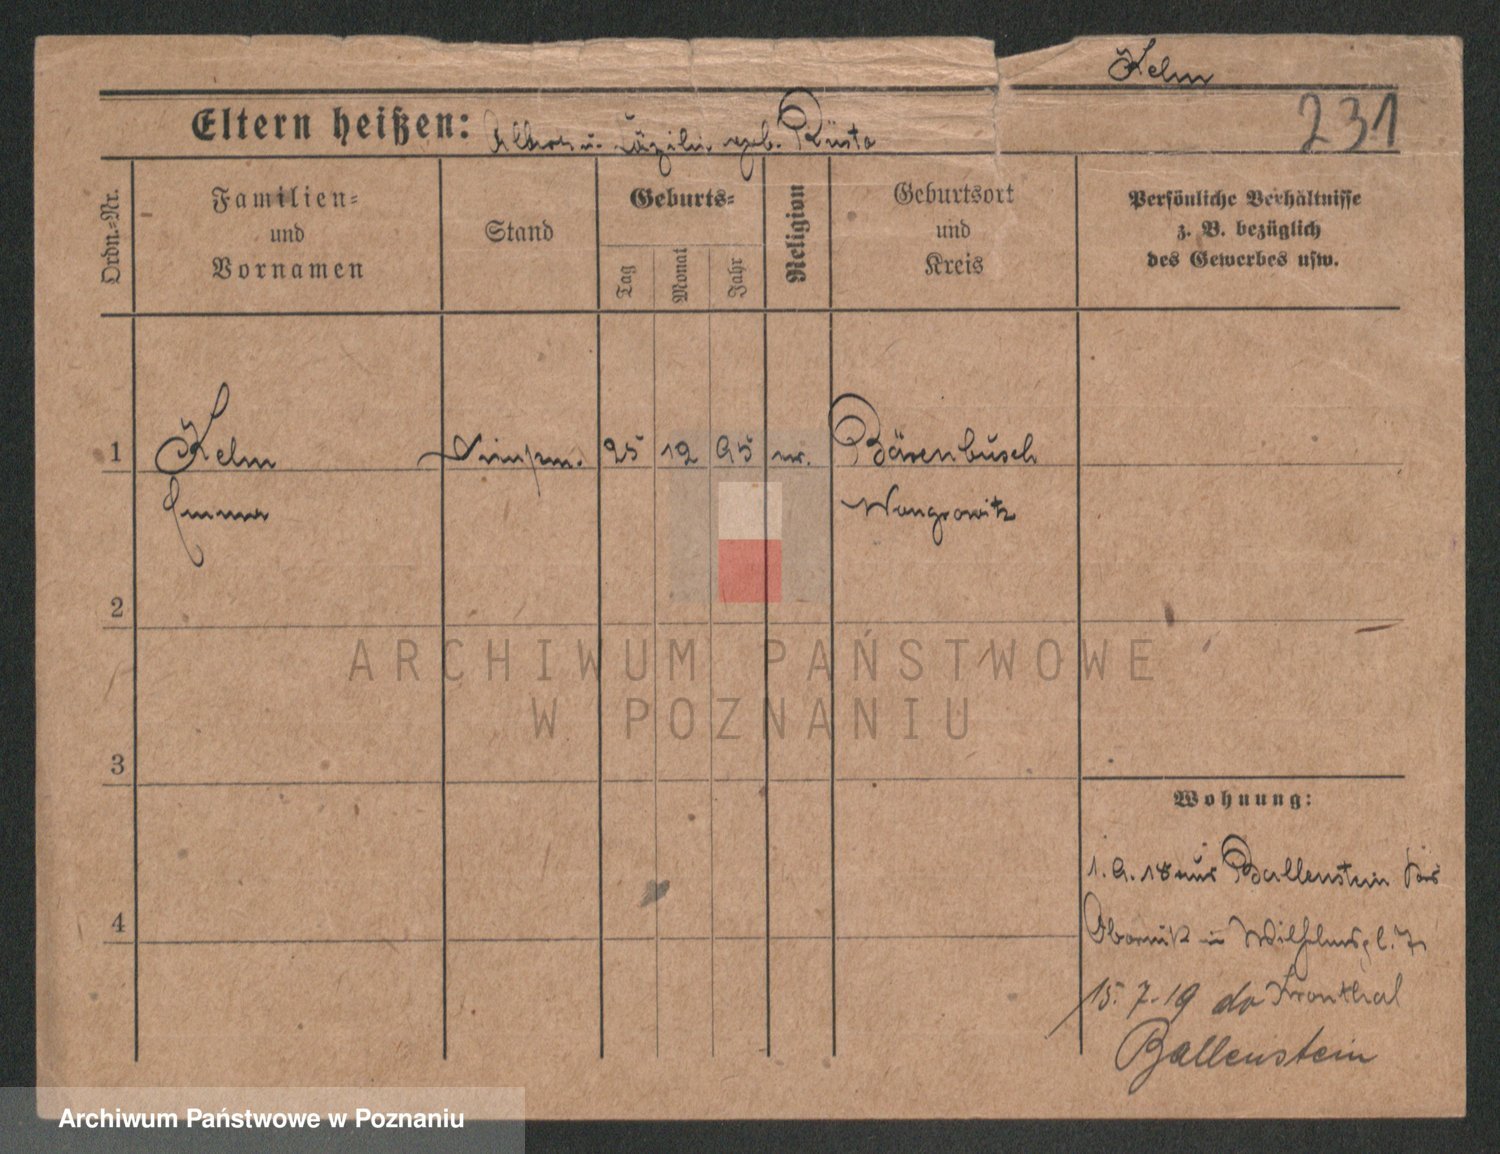 Kelm
231
Eltern heißen: u. Cäzilie geb. Rüsta
Ordn.-Nr.
Familien-
und
Vornamen
Stand
Geburts-
Tag
Monat
Jahr
Religion
Geburtsort
und
Kreis
Persönliche Verhältnisse
z. B. bezüglich
des Gewerbes usw.
1
Kelm
25 12 95
Bärenbusch
Emma
Wongrowitz
2
ARCHIWUM PAŃSTWOWE
W POZNANIU
3
Wohnung:
1. 9. 18 aus Ballenstein Krs
4
Obornik in Wilhelmspl. 7
15. 7. 19 do Kronthal
Ballenstein
Archiwum Państwowe w Poznaniu